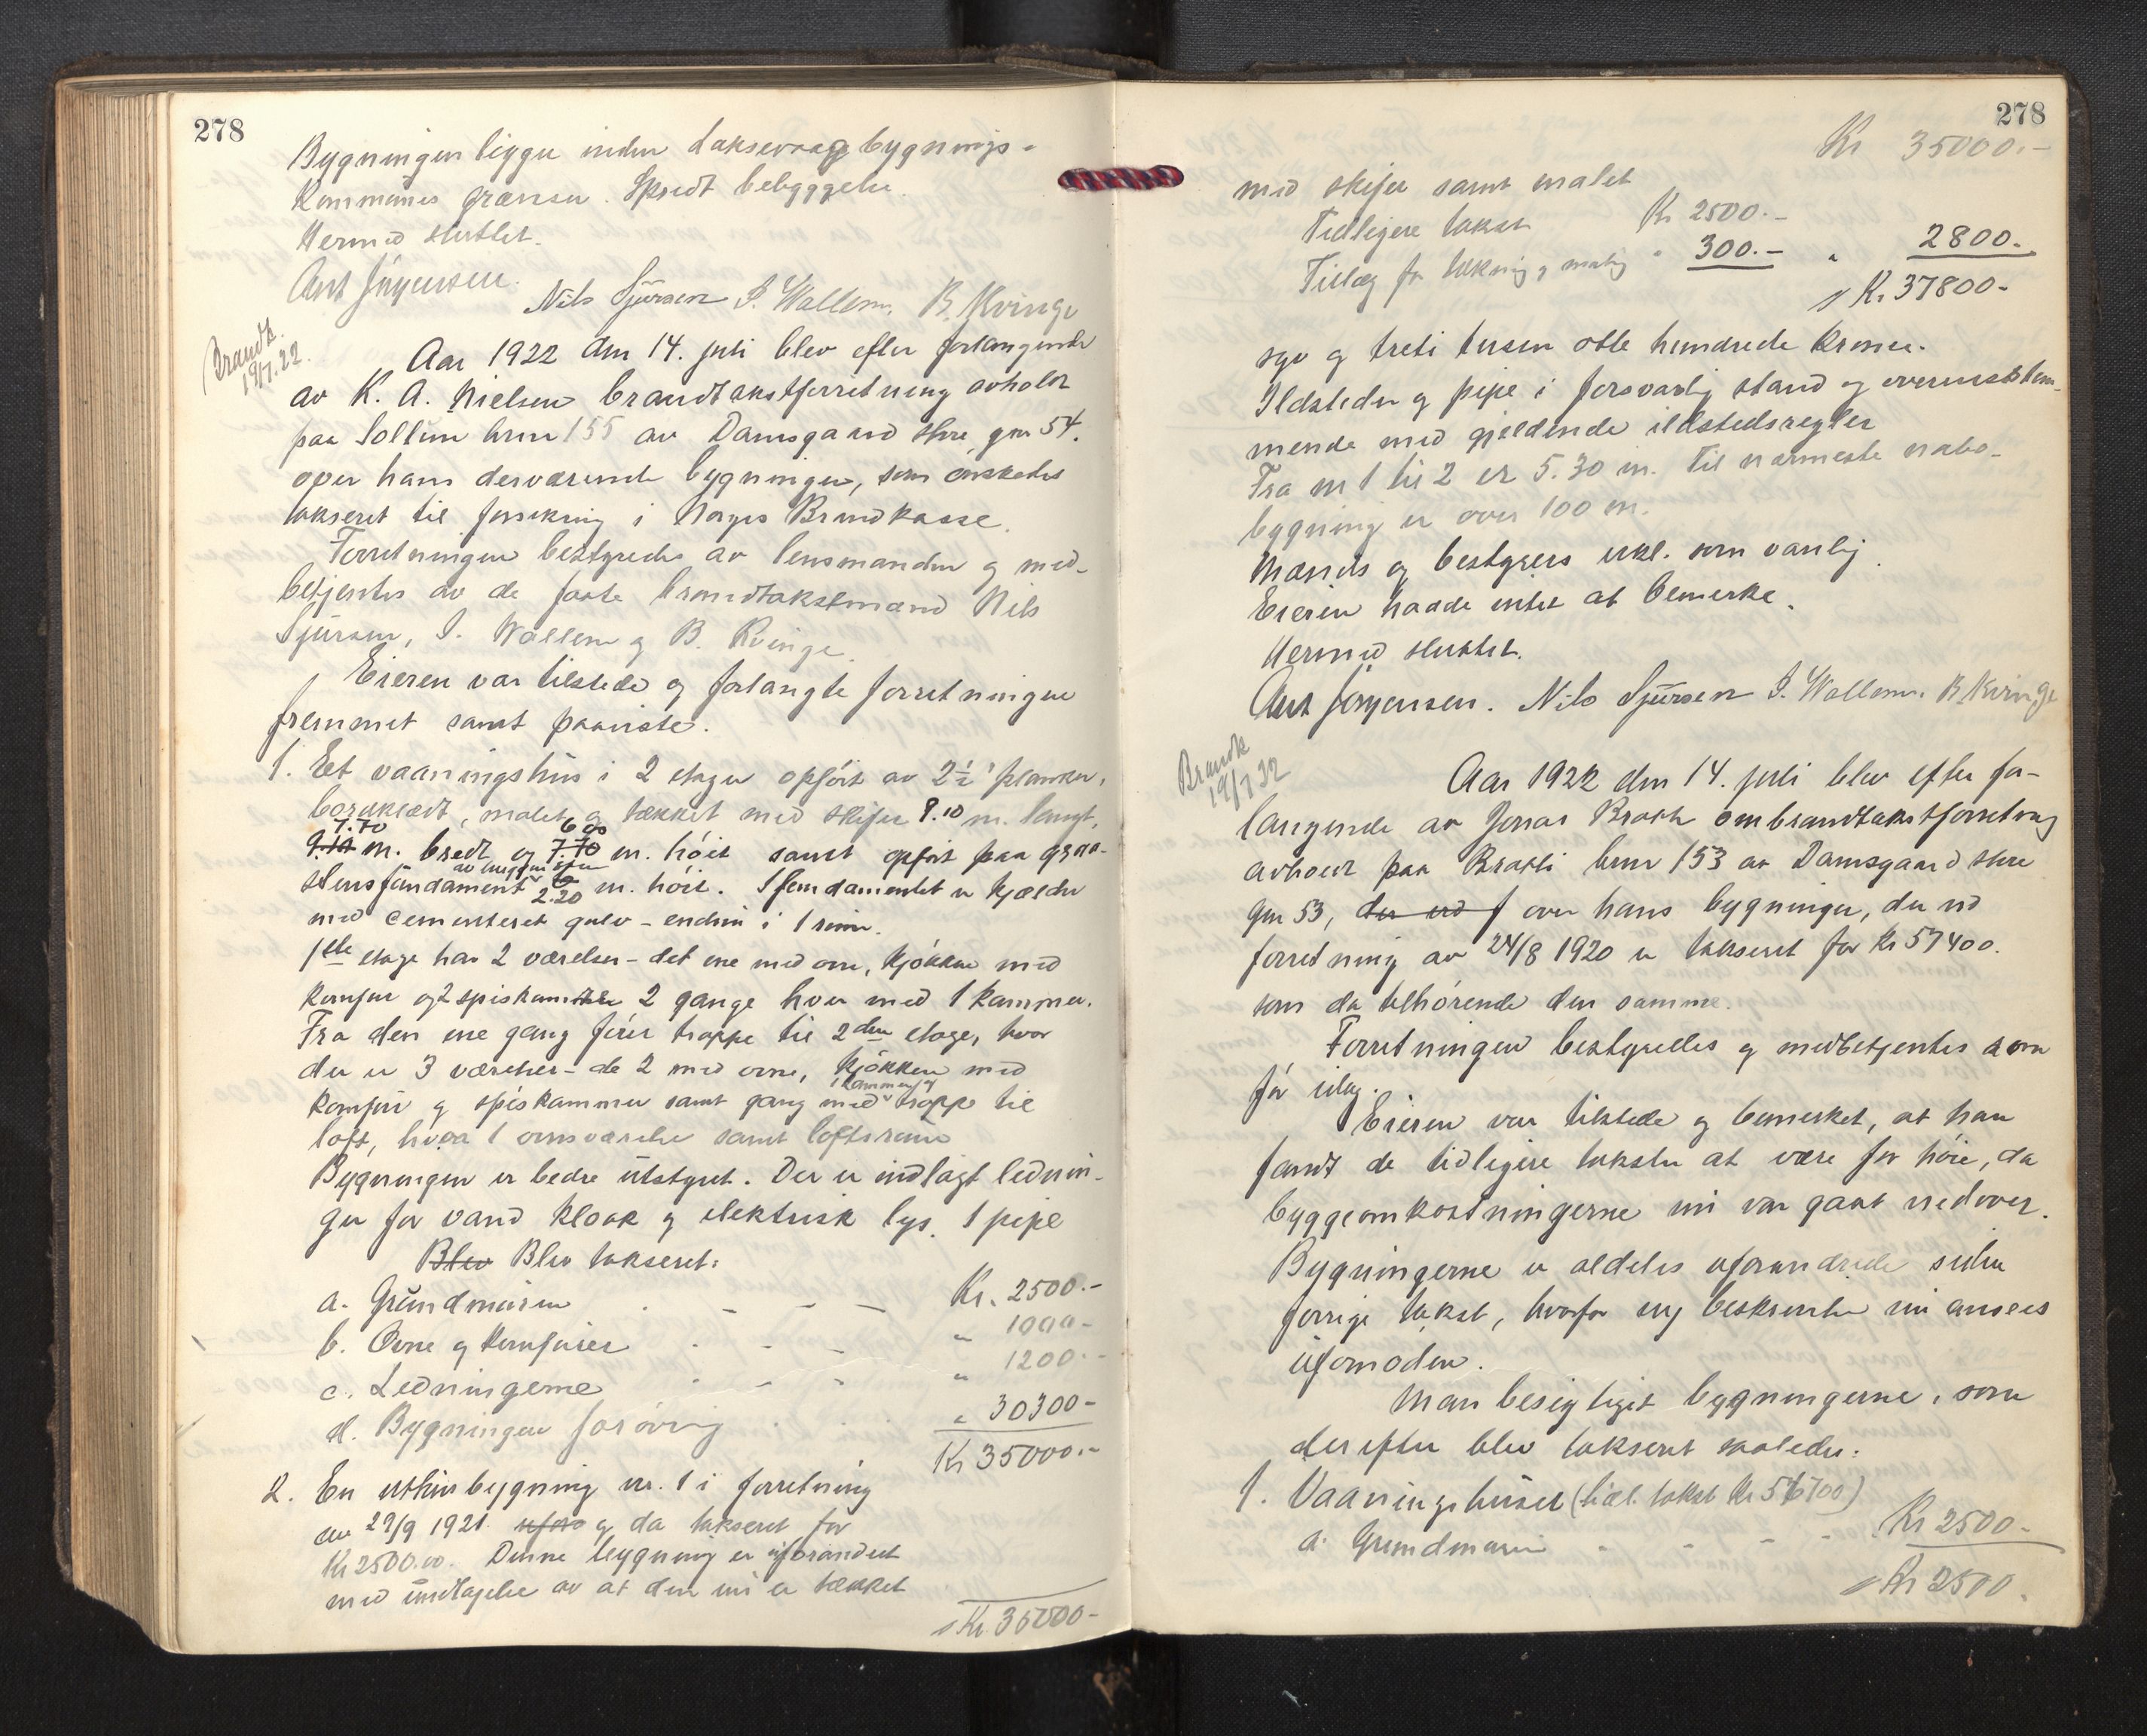 278
Bygningen ligger inden Laksevaag bygnings-
kommunes grænser. Spredt bebyggelse.
Hermed sluttet.
Ant Jörgensen. Nils Sjursen I. Wallem. B. Kvinge
Brandk.
19/7.22.
Aar 1922 den 14. juli blev efter forlangende
av K. A. Nielsen brandtakstforretning avholdt
paa Sollien brnr 155 av Damsgaard store gnr 54.
over hans derværende bygninger, som önskedes
takseret til forsikring i Norges Brandkasse.
Forretningen bestyredes av lensmanden og med-
betjentes av de faste brandtakstmænd Nils
Sjursen, I. Wallem og B. Kvinge.
Eieren var tilstede og forlangte forretningen
fremmet samt paaviste.
1. Et vaaningshus i 2 etager opfört av 2½" planker,
bordklædt, malet og tækket med skifer 8.10 m. langt,
7.70 6.00
9.10 m. bredt og 7.70 m. höit samt opfört paa graa-
stensfundament 2.20 m. höit. I fundamentet er kjælder
med cementeret gulv - endnu i 1 rum.
1ste etage har 2 værelser - det ene med ovn, kjökken med
komfur og 2 spiskammer 2 gange hver med 1 kammer.
Fra den ene gang förer trappe til 2den etage, hvor
der er 3 værelser - de 2 med ovne, kjökken med
1 kammer og
komfur og spiskammer samt gang med trappe til
loft, hvor 1 ovnsværelse samt loftsrum
Bygningen er bedre utstyret. Der er indlagt lednin-
ger for vand kloak og elektrisk lys. 1 pipe
Blev Blev takseret:
a. Grundmuren - - - Kr. 2500.-
b. Ovne og komfurer - - - " 1000-
c. Ledningerne - - - " 1200.-
d. Bygningen forövrig " 30300-
Kr 35000.-
2. En uthusbygning nr. 1 i forretning
av 29/9 1921 og da takseret for
Kr 2500.00. Denne bygning er uforandret
med undtagelse av at den nu er tækket
Kr. 35000-
278
Kr 35000.-
med skifer samt malet
Tidligere takst Kr 2500.-
Tillæg for tækning og maling " 300.- " 2800.-
Kr. 37800-
syv og treti tusen otte hundrede kroner.
Ildsteder og pipe i forsvarlig stand og overensstem-
mende med gjældende ildstedsregler
Fra nr 1 til 2 er 5.30 m. Til nærmeste nabo-
bygning er over 100 m.
Mænds og bestyrers erkl. som vanlig.
Eieren hadde intet at bemerke.
Hermed sluttet.
Ant Jörgensen. Nils Sjursen I. Wallem. B. Kvinge
Brandk
19/7 32
Aar 1922 den 14. juli blev efter for-
langende av Jonas Braat ombrandtakstforretning
avholdt paa Bratli brnr 153 av Damsgaard store
gnr 53, der ved f over hans bygninger, der ved
forretning av 24/8 1920 er takseret for Kr 57400.
som da tilhörende den samme.
Forretningen bestyredes og medbetjentes som
för idag.
Eieren var tilstede og bemerket, at han
fandt de tidligere takster at være for höie, da
byggeomkostningerne nu var gaat nedover.
Bygningerne er aldeles uforandrede siden
forrige takst, hvorfor ny beskrivelse nu ansees
ufornöden.
Man besigtiget bygningerne, som
derefter blev takseret saaledes:
1. Vaaningshuset (tidl. takst Kr 56700)
a. Grundmuren - - - - Kr 2500-
Kr 2500.